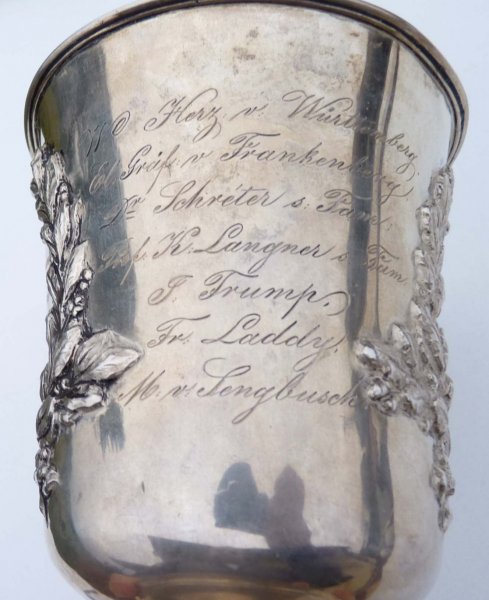 Herz. v. Würtemberg,
Gräf. v. Frankenberg,
Dr Schréter s: Fam:
K. Langner s Fam
J. Trump,
Fr. Laddy,
M. v. Sengbusch